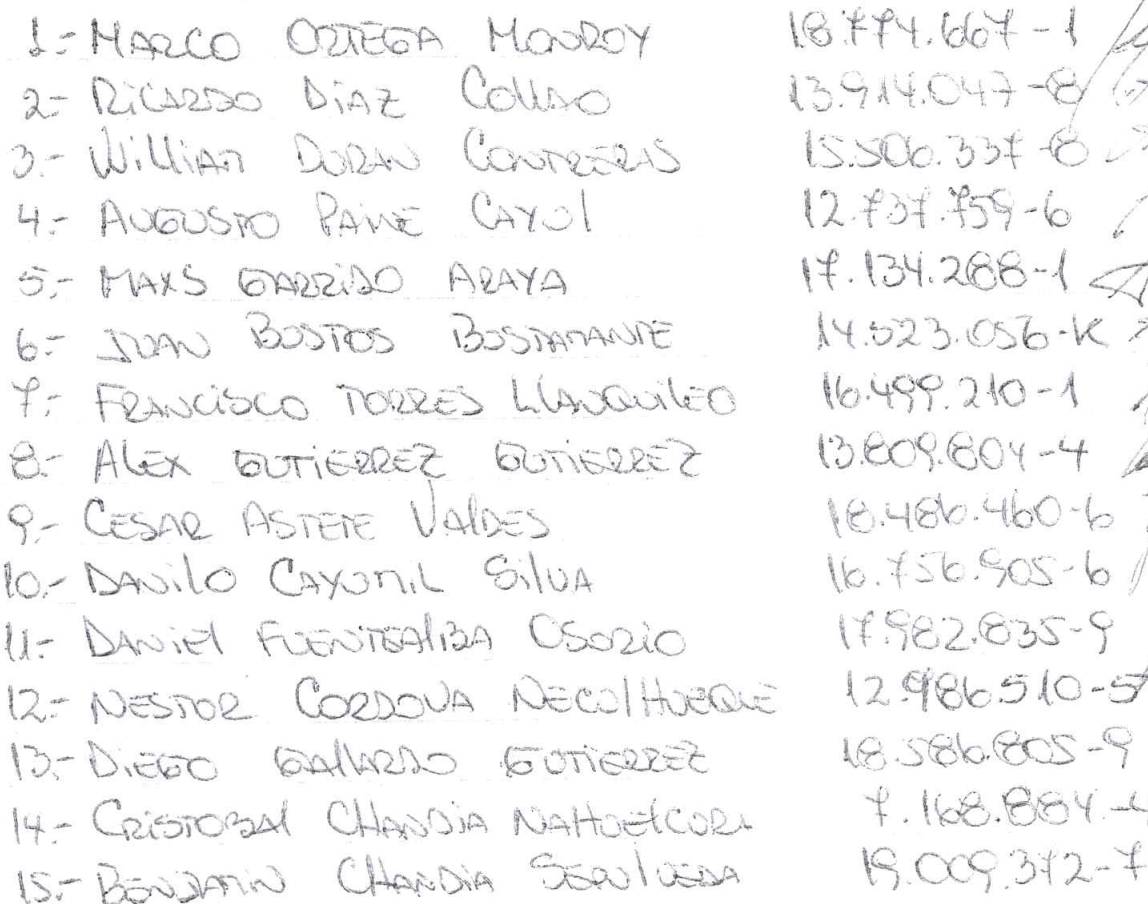 1.- MARCO ORTEGA MONROY 18.774.667-1
2.- RiCARDO DiAZ Collao 13.914.047-8
3.- WilliAn DURAN CONTRERAS 15.506.337-8
4.- AUGUSTO PAINE CAYul 12.737.759-6
5.- MAXS GARRiDO ARAYA 17.134.288-1
6.- JUAN BUSTOS BUSTAMANTE 14.523.056-K
7.- FRANCiSCO TORRES LlANQUiLEO 16.499.210-1
8.- ALEX GUTiERREZ GUTiERREZ 13.809.804-4
9.- CESAR ASTETE VAlDES 18.486.460-6
10.- DANilO CAYUMiL SilVA 16.756.905-6
11.- DANiEl FUENTEAlBA OSORiO 17.982.835-9
12.- NESTOR CORDOVA NECulHUEQUE 12.986.510-5
13.- DiEGO GAllARDO GUTiERREZ 18.586.805-9
14.- CRiSTOBAl CHANDiA 7.168.884-
15.- BENJAMiN CHANDiA SEPUlVEDA 19.009.372-7